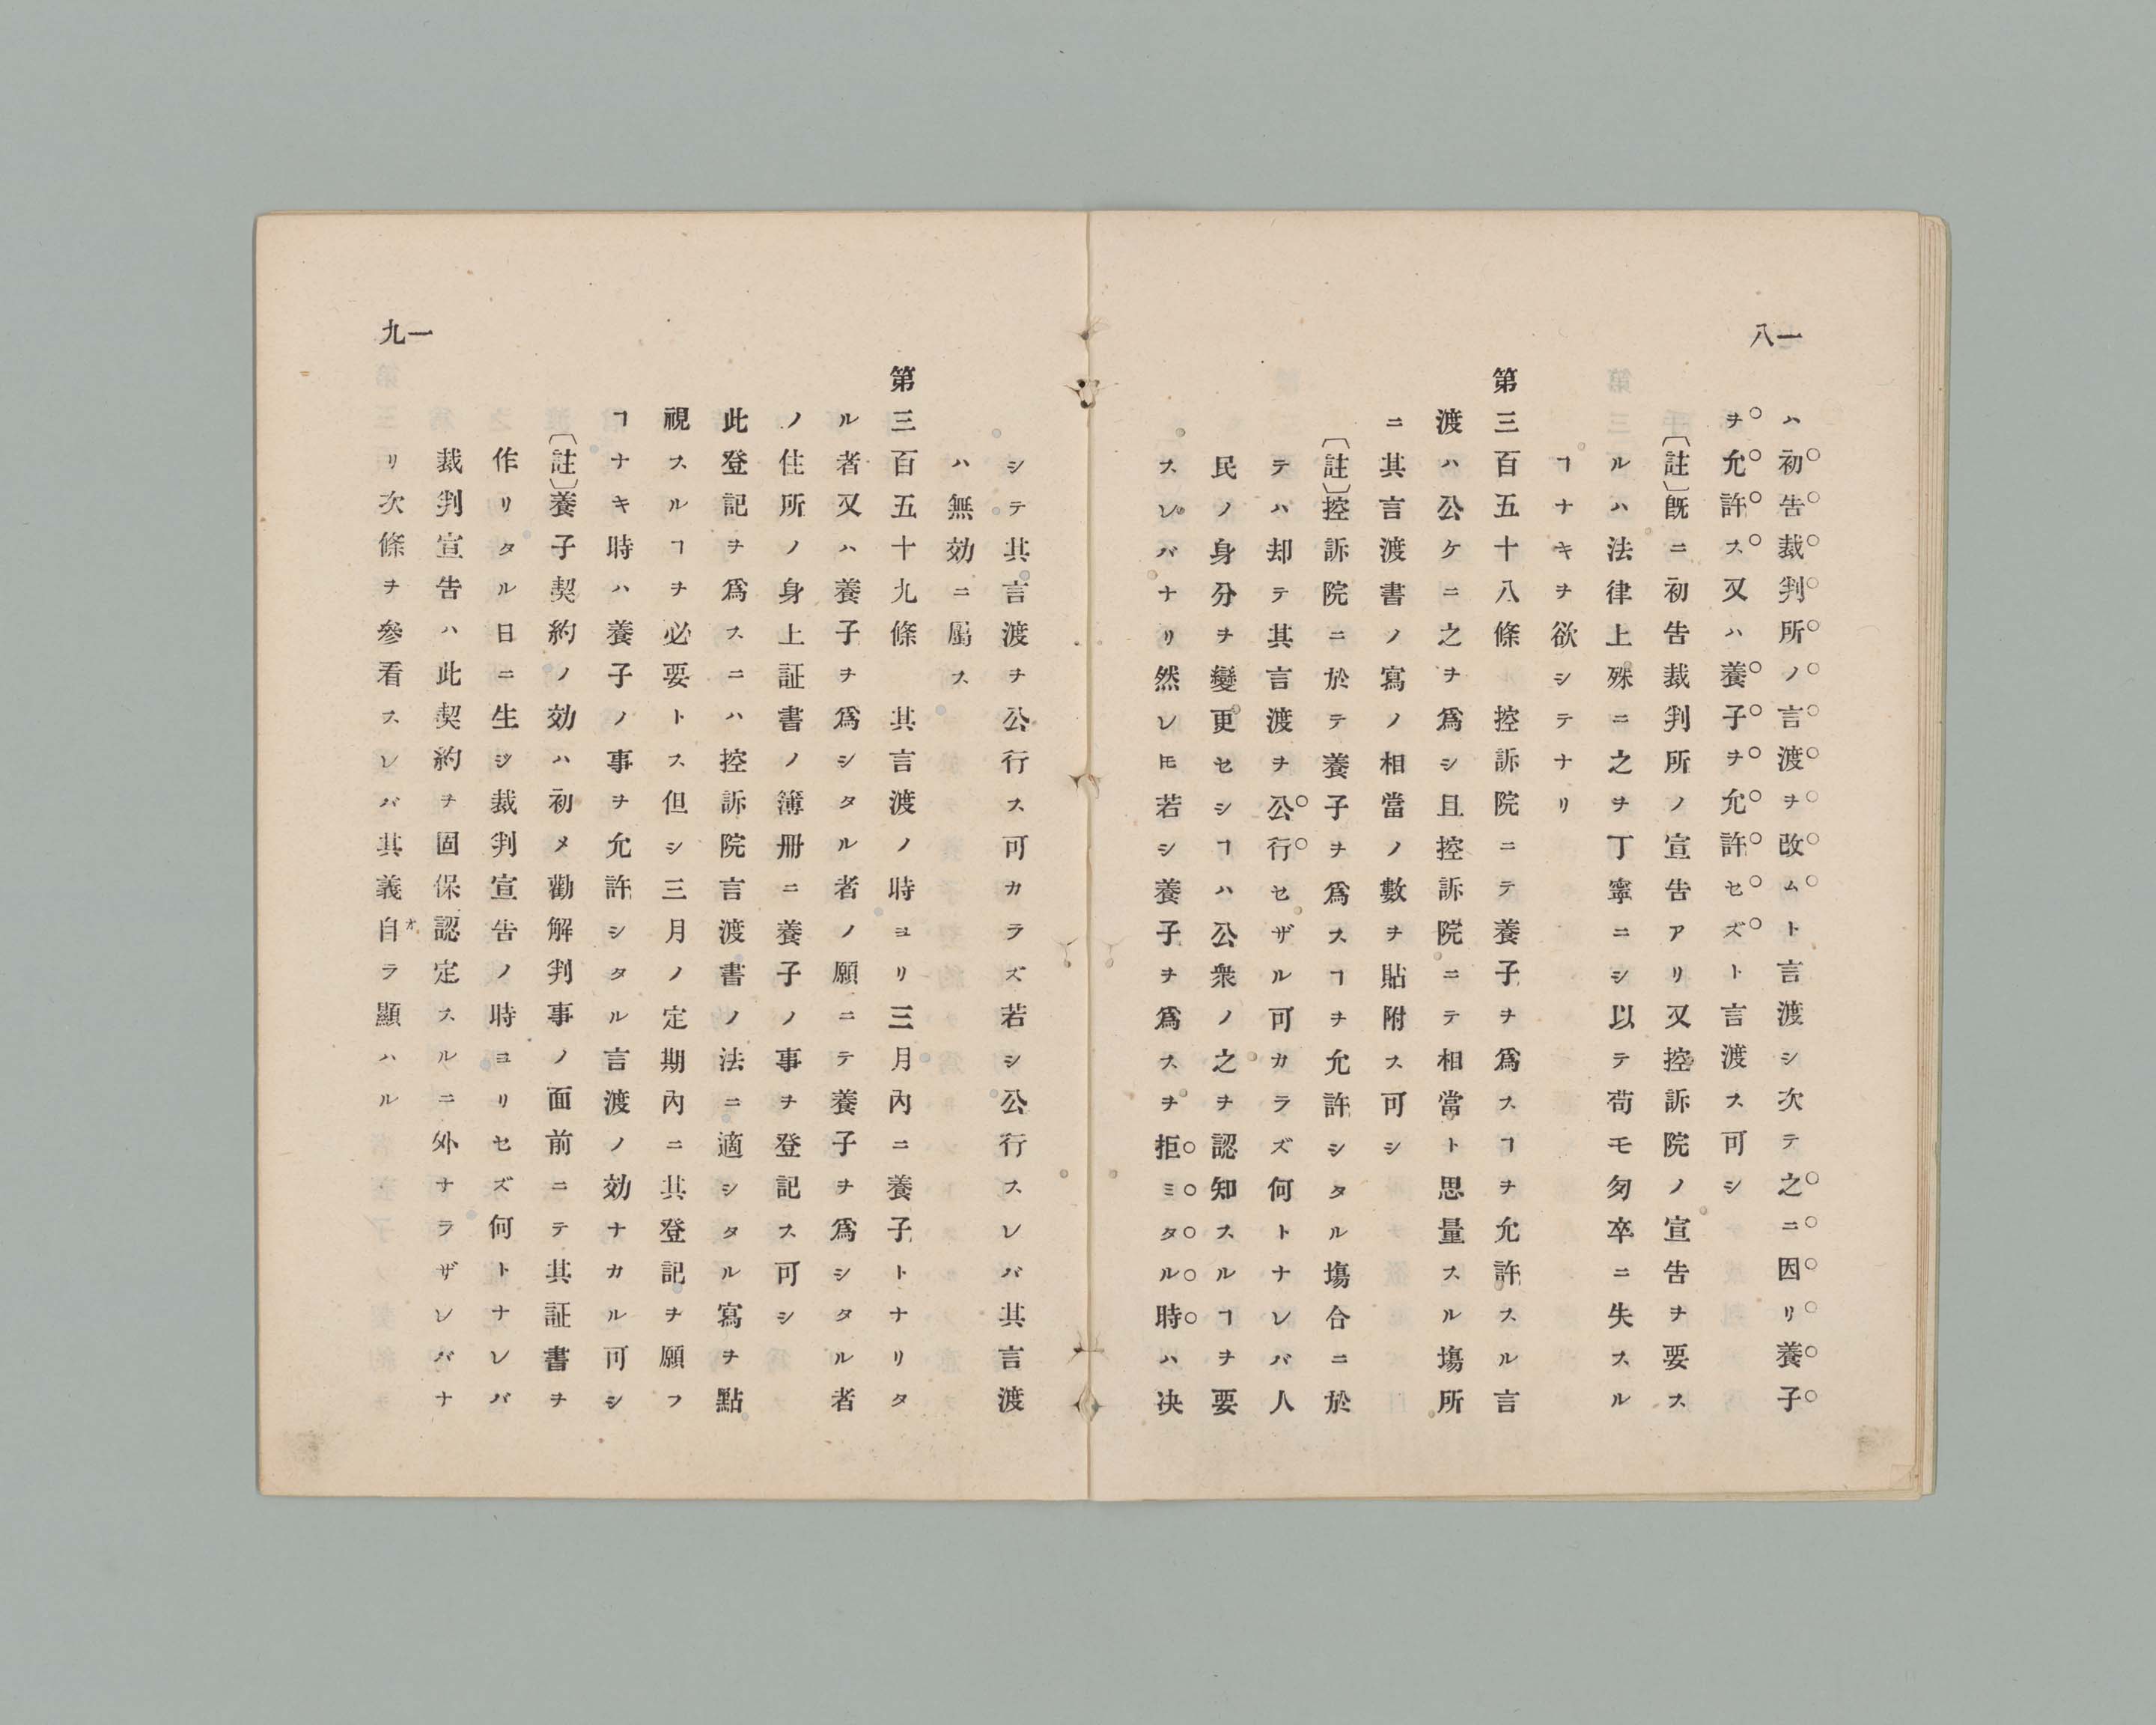 一八
ハ初告裁判所ノ言渡ヲ改ムト言渡シ次テ之ニ因リ養子
ヲ允許ス又ハ養子ヲ允許セズト言渡ス可シ
〔註〕既ニ初告裁判所ノ宣告アリ又控訴院ノ宣告ヲ要ス
ルハ法律上殊ニ之ヲ丁寧ニシ以テ苟モ匆卒ニ失スル
ヿナキヲ欲シテナリ
第三百五十八條 控訴院ニテ養子ヲ爲スヿヲ允許スル言
渡ハ公ケニ之ヲ爲シ且控訴院ニテ相當ト思量スル塲所
ニ其言渡書ノ寫ノ相當ノ數ヲ貼附ス可シ
〔註〕控訴院ニ於テ養子ヲ爲スヿヲ允許シタル塲合ニ於
テハ却テ其言渡ヲ公行セザル可カラズ何トナレバ人
民ノ身分ヲ變更セシヿハ公衆ノ之ヲ認知スルヿヲ要
スレバナリ然レ𪜈若シ養子ヲ爲スヲ拒ミタル時ハ决
シテ其言渡ヲ公行ス可カラズ若シ公行スレバ其言渡
ハ無効ニ屬ス
第三百五十九條 其言渡ノ時ヨリ三月內ニ養子トナリタ
ル者又ハ養子ヲ爲シタル者ノ願ニテ養子ヲ爲シタル者
ノ住所ノ身上証書ノ簿册ニ養子ノ事ヲ登記ス可シ
此登記ヲ爲スニハ控訴院言渡書ノ法ニ適シタル寫ヲ點
視スルヿヲ必要トス但シ三月ノ定期內ニ其登記ヲ願フ
ヿナキ時ハ養子ノ事ヲ允許シタル言渡ノ効ナカル可シ
〔註〕養子契約ノ効ハ初メ勸解判事ノ面前ニテ其証書ヲ
作リタル日ニ生ジ裁判宣告ノ時ヨリセズ何トナレバ
裁判宣告ハ此契約ヲ固保認定スルニ外ナラザレバナ
リ次條ヲ參看スレバ其義自オラ顯ハル
一九